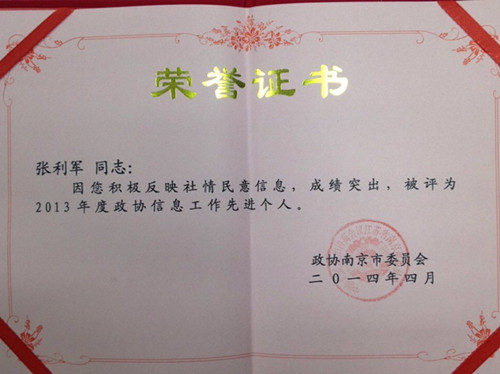 荣誉证书
张利军 同志：
因您积极反映社情民意信息，成绩突出，被评为
2013年度政协信息工作先进个人。
政协南京市委员会
二〇一四年四月